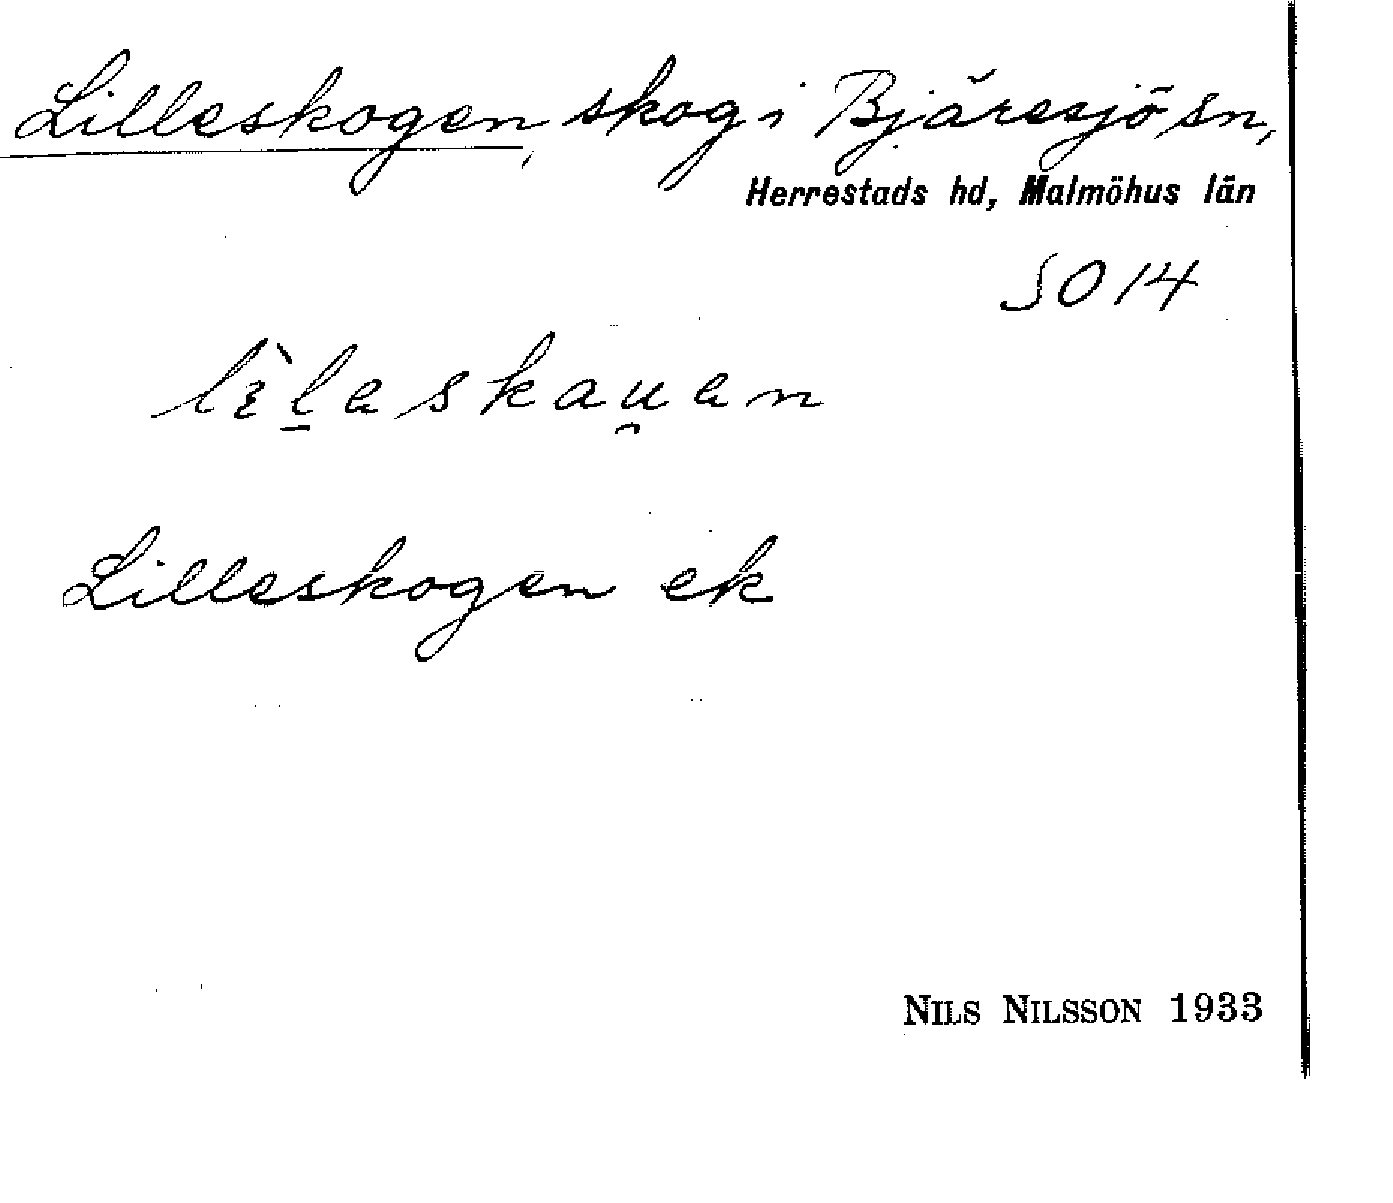 Lilleskogen, skog i Bjäresjö sn,
Herrestads hd, Malmöhus län
SO 14
Lilleskogen ek
NILS NILSSON 1933